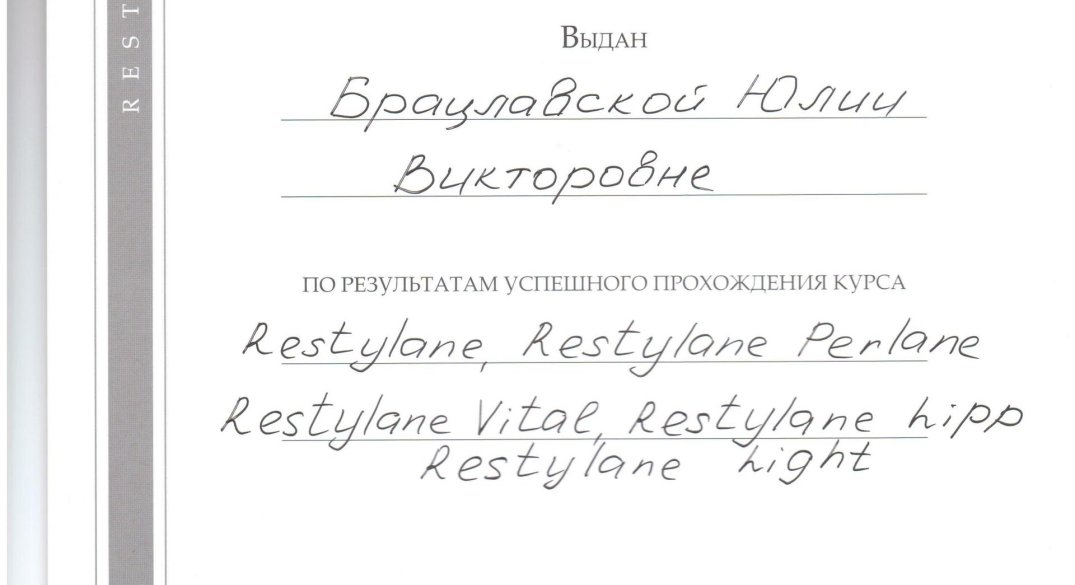 REST
Выдан
Брацлавской Юлии
Викторовне
ПО РЕЗУЛЬТАТАМ УСПЕШНОГО ПРОХОЖДЕНИЯ КУРСА
Restylane, Restylane Perlane
Restylane Vital, Restylane Lipp
Restylane Light